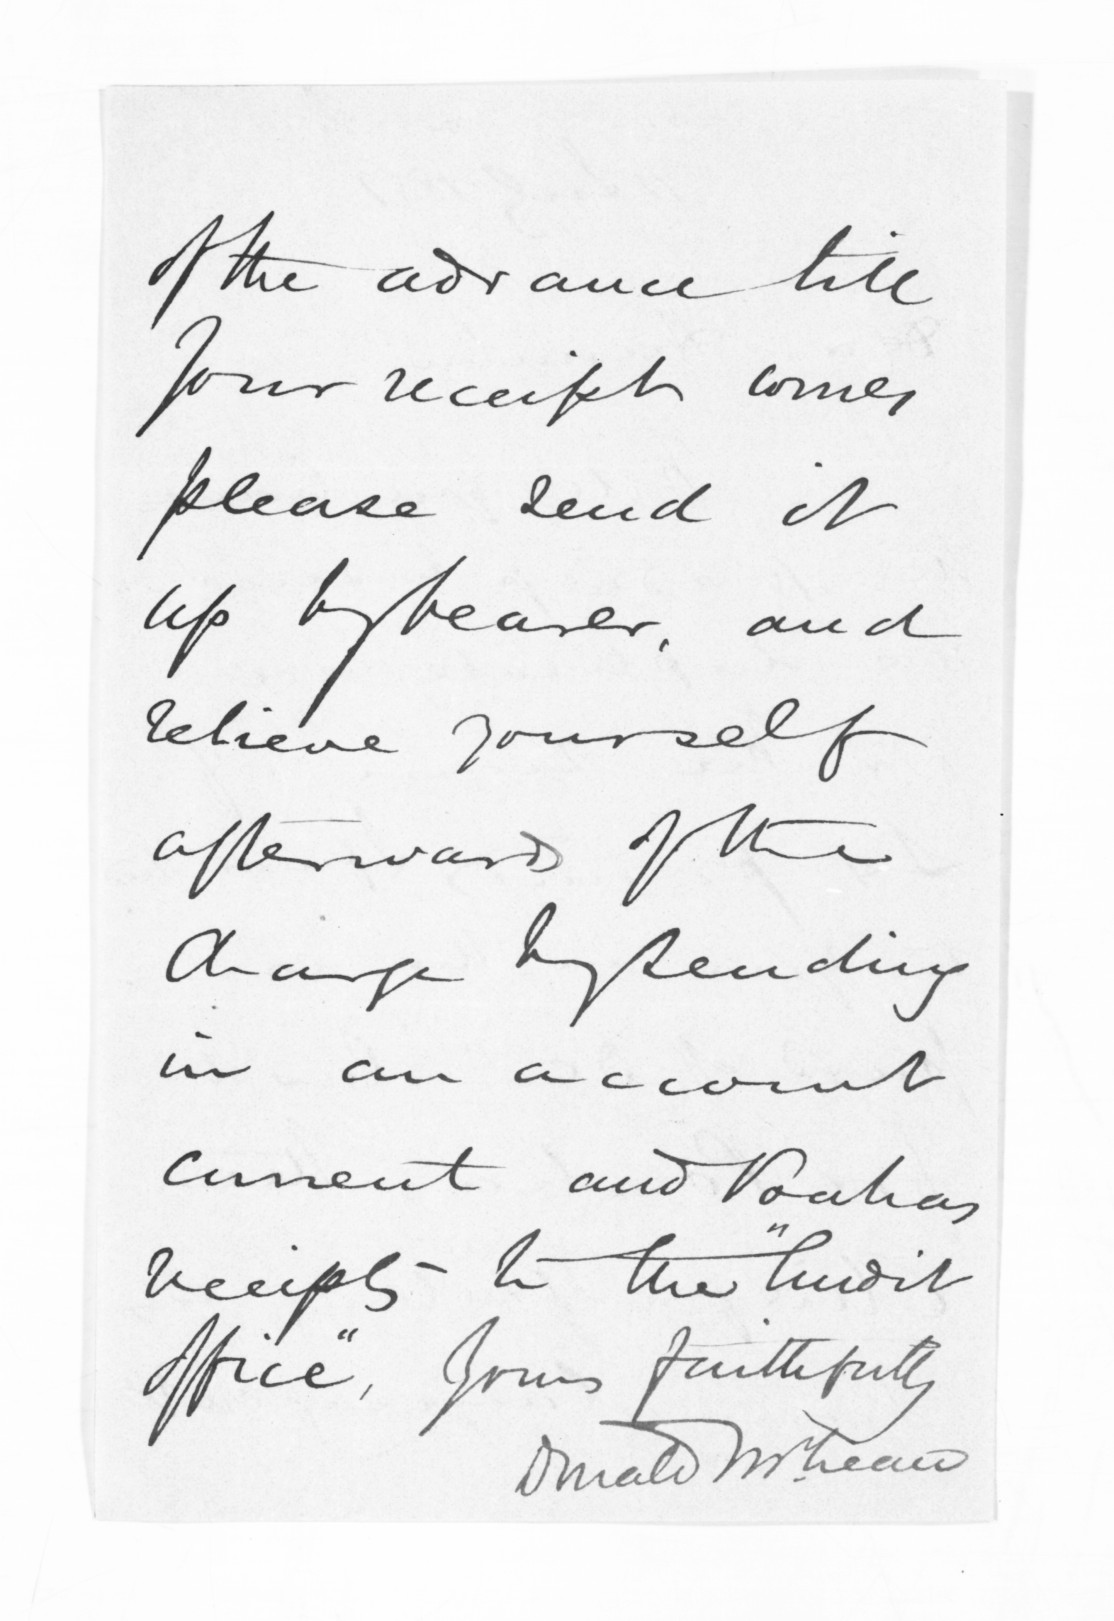 of the advance till
your receipt comes
please send it
up by bearer, and
relieve yourself
afterwards of the
charge by sending
in an account
current and Poahas
receipts to the "Audit
office", Yours faithfully
Donald McLean